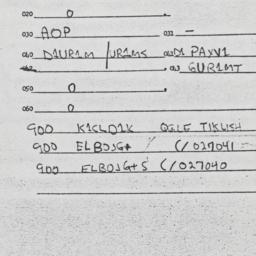 020 0
030 AOP 033 -
040 DAUR1M /URIMS 041 PAXV1
042 043 GURIMT
050 0
060 0
900 K1CLD1K OGLE TIKLISH
900 ELBOJG+ / C/027041 -
900 ELBOJG+S C/027040